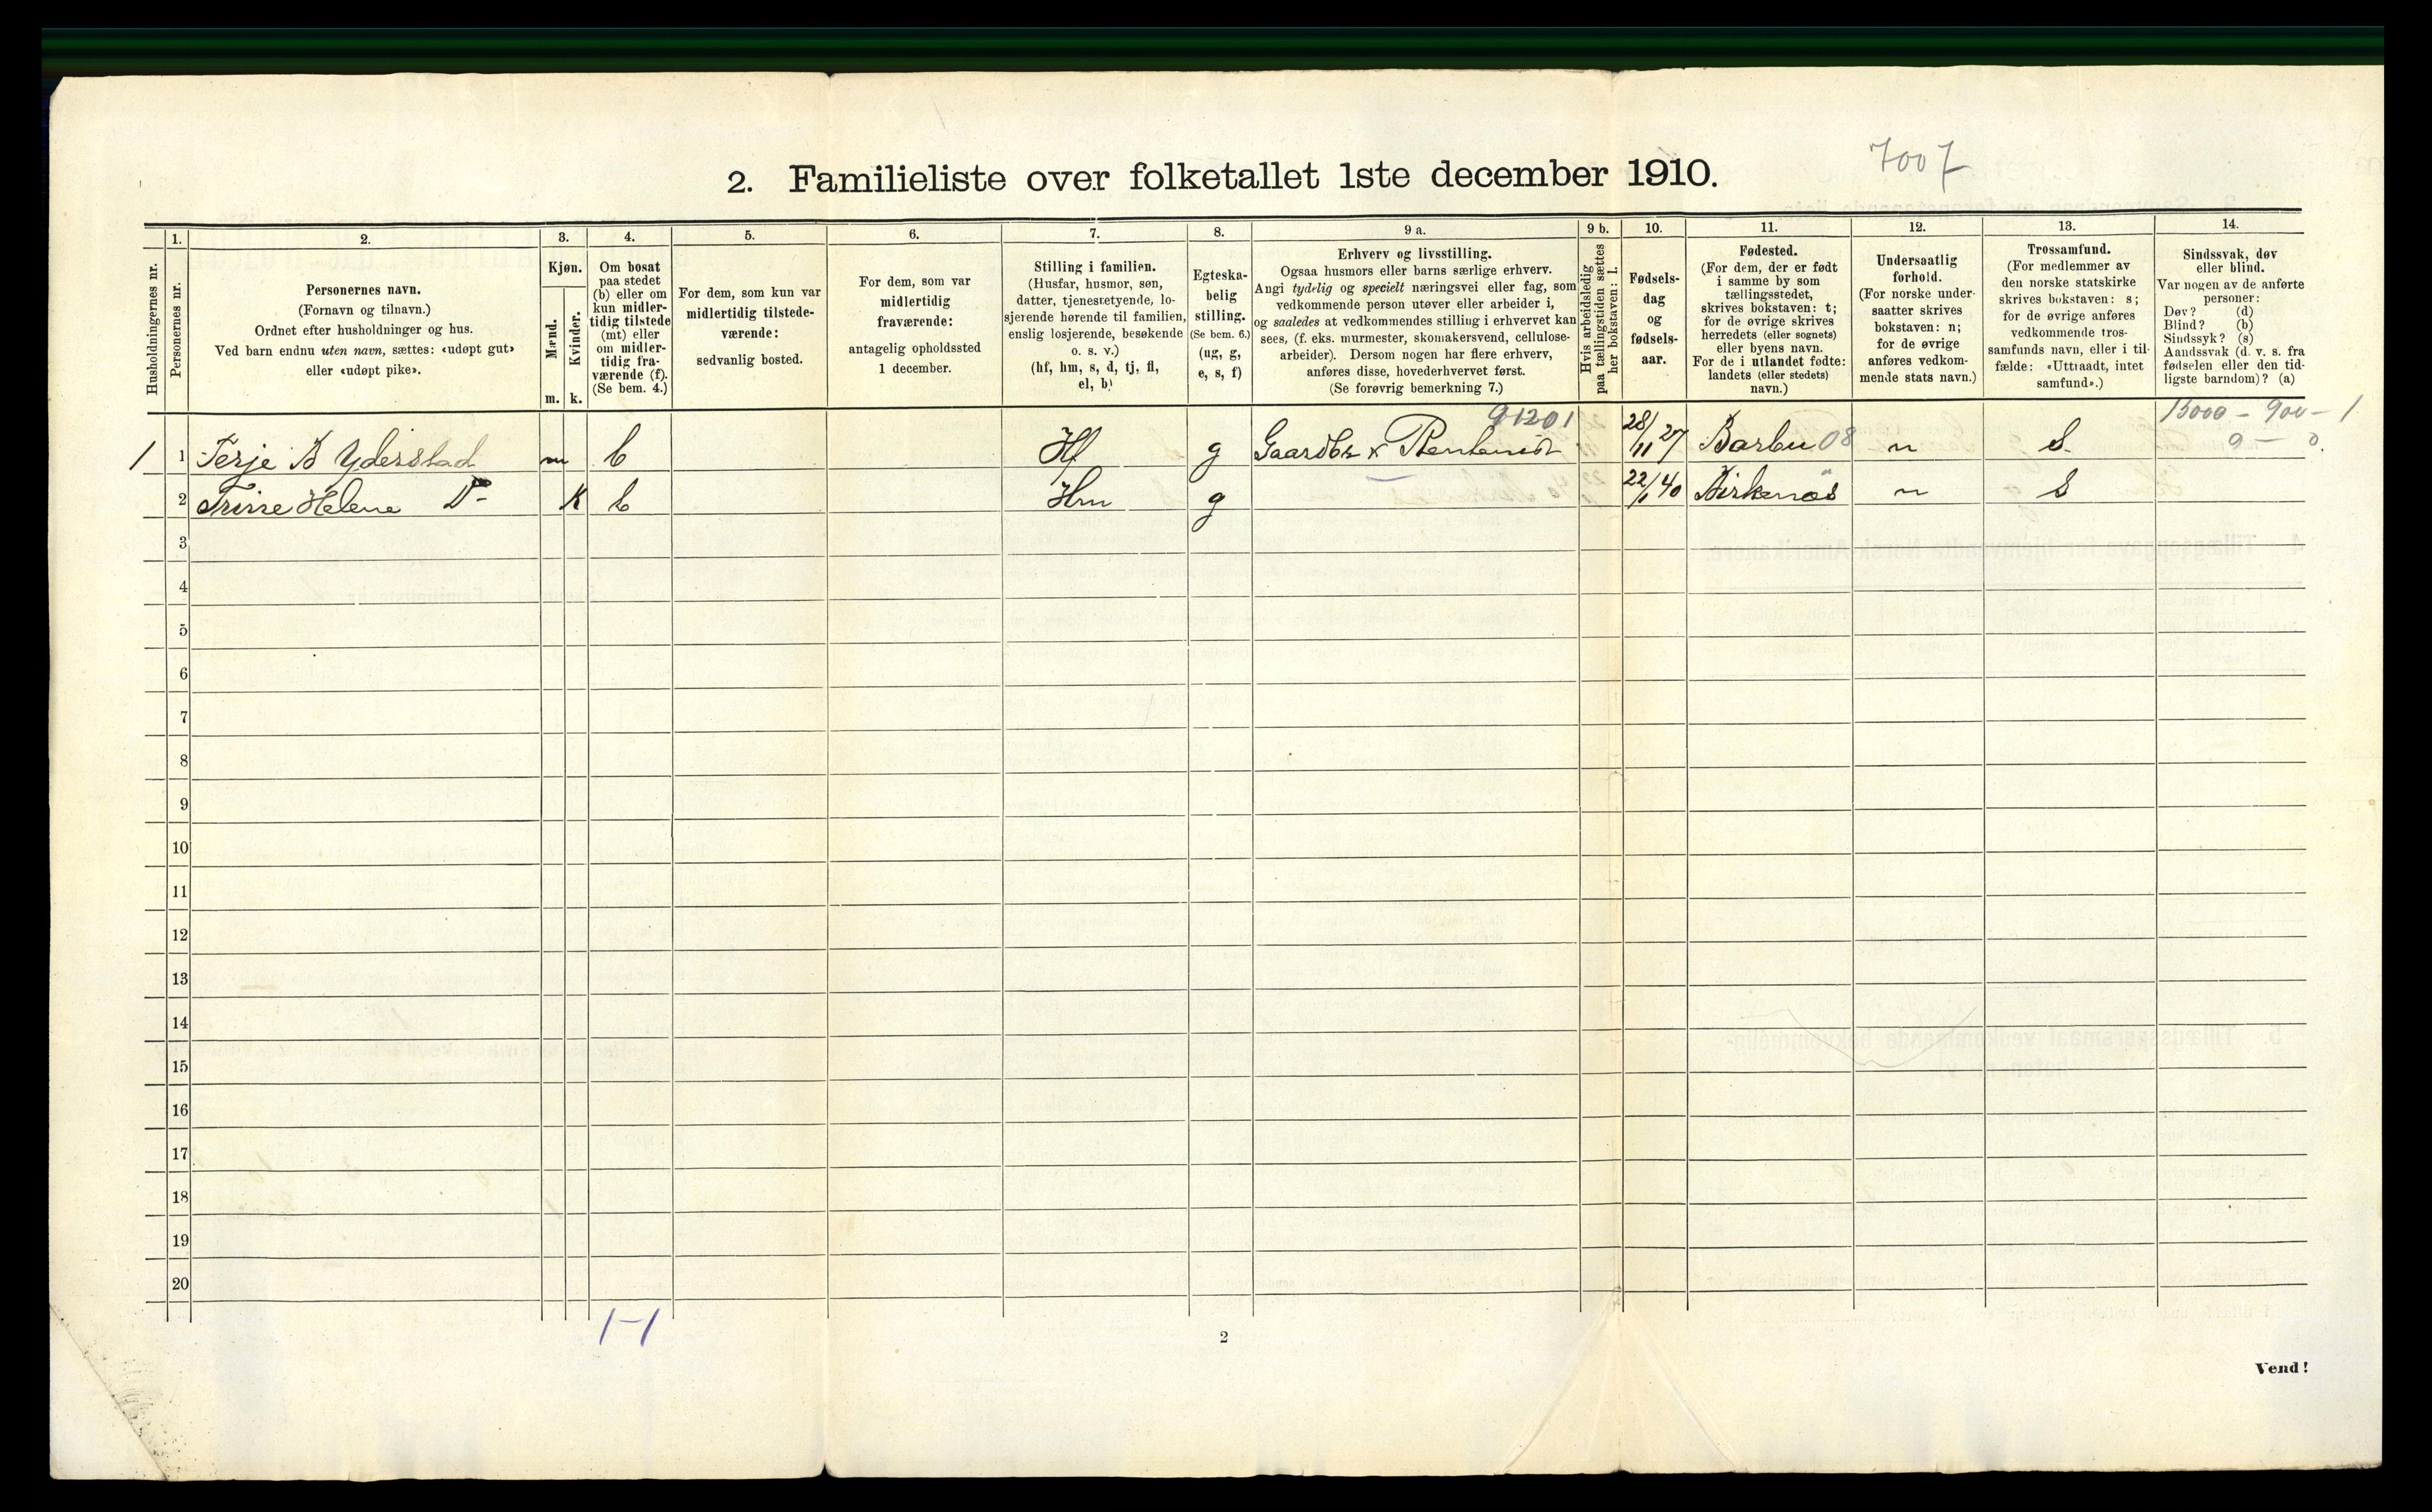 7007
2. Familieliste over folketallet 1ste december 1910.
Husholdningernes nr.
1.
Personernes nr.
2.
Personernes navn.
(Fornavn og tilnavn.)
Ordnet efter husholdninger og hus.
Ved barn endnu uten navn, sættes: «udøpt gut»
eller «udøpt pike».
3.
Kjøn.
Mænd.
Kvinder.
m. k.
4.
Om bosat
paa stedet
(b) eller om
kun midler-
tidig tilstede
(mt) eller
om midler-
tidig fra-
værende (f).
(Se bem. 4.)
5.
For dem, som kun var
midlertidig tilstede-
værende:
sedvanlig bosted.
6.
For dem, som var
midlertidig
fraværende:
antagelig opholdssted
1 december.
7.
Stilling i familien.
(Husfar, husmor, søn,
datter, tjenestetyende, lo-
sjerende hørende til familien,
enslig losjerende, besøkende
o. s. v.)
(hf, hm, s, d, tj, fl,
el, b)
8.
Egteska-
belig
stilling.
(Se bem. 6.)
(ug, g,
e, s, f)
9 a.
Erhverv og livsstilling.
Ogsaa husmors eller barns særlige erhverv.
Angi tydelig og specielt næringsvei eller fag, som
vedkommende person utøver eller arbeider i,
og saaledes at vedkommendes stilling i erhvervet kan
sees, (f. eks. murmester, skomakersvend, cellulose-
arbeider). Dersom nogen har flere erhverv,
anføres disse, hovederhvervet først.
(Se forøvrig bemerkning 7.)
9 b.
Hvis arbeidsledig
paa tællingstiden sættes
her bokstaven: l.
10.
Fødsels-
dag
og
fødsels-
aar.
11.
Fødested.
(For dem, der er født
i samme by som
tællingsstedet,
skrives bokstaven: t;
for de øvrige skrives
herredets (eller sognets)
eller byens navn.
For de i utlandet fødte:
landets (eller stedets)
navn.)
12.
Undersaatlig
forhold.
(For norske under-
saatter skrives
bokstaven: n;
for de øvrige
anføres vedkom-
mende stats navn.)
13.
Trossamfund.
(For medlemmer av
den norske statskirke
skrives bokstaven: s;
for de øvrige anføres
vedkommende tros-
samfunds navn, eller i til-
fælde: «Uttraadt, intet
samfund».)
14.
Sindssvak, døv
eller blind.
Var nogen av de anførte
personer:
Døv? (d)
Blind? (b)
Sindssyk? (s)
Aandssvak (d. v. s. fra
fødselen eller den tid-
ligste barndom)? (a)
91201
13000 - 900 - 1
0 - 0
1 1 Terje B Yderstad m b Hf g Gaardbr x Rentenist 28/11 27 Barbu 08 n S
2 Trine Helene Do K b Hm g 22/1 40 Birkenæs n S
3
4
5
6
7
8
9
10
11
12
13
14
15
16
17
18
19
20
1-1
2
Vend!